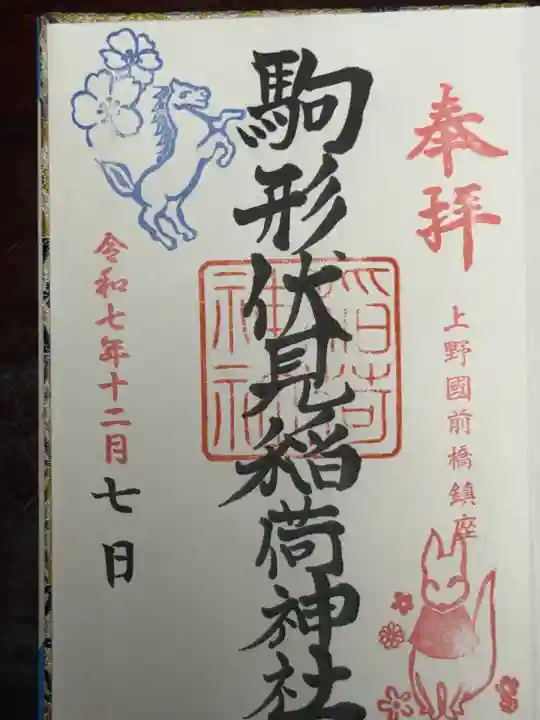 奉拝
上野國前橋鎮座
駒形伏見稲荷神社
稲荷
神社
令和七年十二月七日